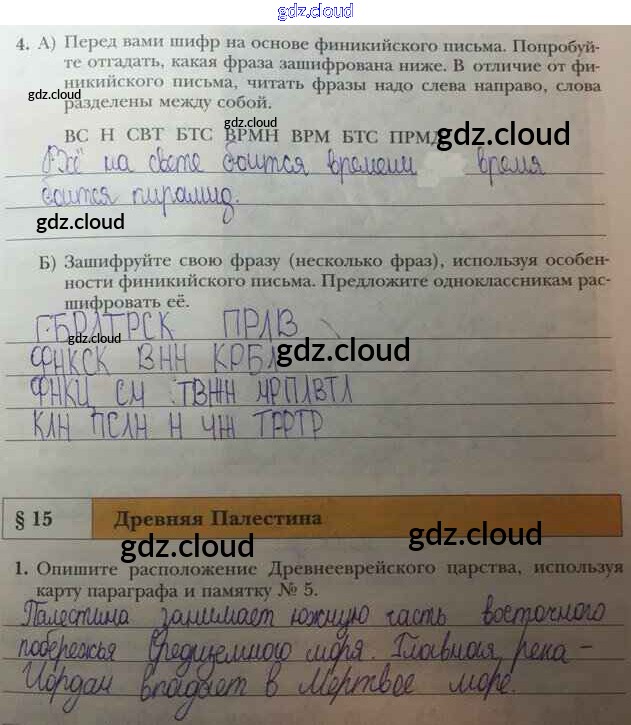 gdz.cloud
4. А) Перед вами шифр на основе финикийского письма. Попробуй-
те отгадать, какая фраза зашифрована ниже. В отличие от фи-
никийского письма, читать фразы надо слева направо, слова
gdz.cloud
разделены между собой.
gdz.cloud
ВС Н СВТ БТС ВРМН ВРМ БТС ПРМД
gdz.cloud
Всё на свете боится времени время
боится пирамид.
gdz.cloud
Б) Зашифруйте свою фразу (несколько фраз), используя особен-
ности финикийского письма. Предложите одноклассникам рас-
шифровать её.
gdz.cloud
ГБРЛТРСК ПРЛВ
ФНКСК ВНН КРБЛ
gdz.cloud
ФНКЦ СМ ТВЖН МРПЛВТЛ
КЛН ПСЛН Н ЧЖ ТРРТР
§ 15 Древняя Палестина
gdz.cloud
gdz.cloud
1. Опишите расположение Древнееврейского царства, используя
карту параграфа и памятку № 5.
gdz.cloud
Палестина занимает южную часть восточного
побережья Средиземного моря. Главная река -
Иордан впадает в Мёртвое море.
gdz.cloud